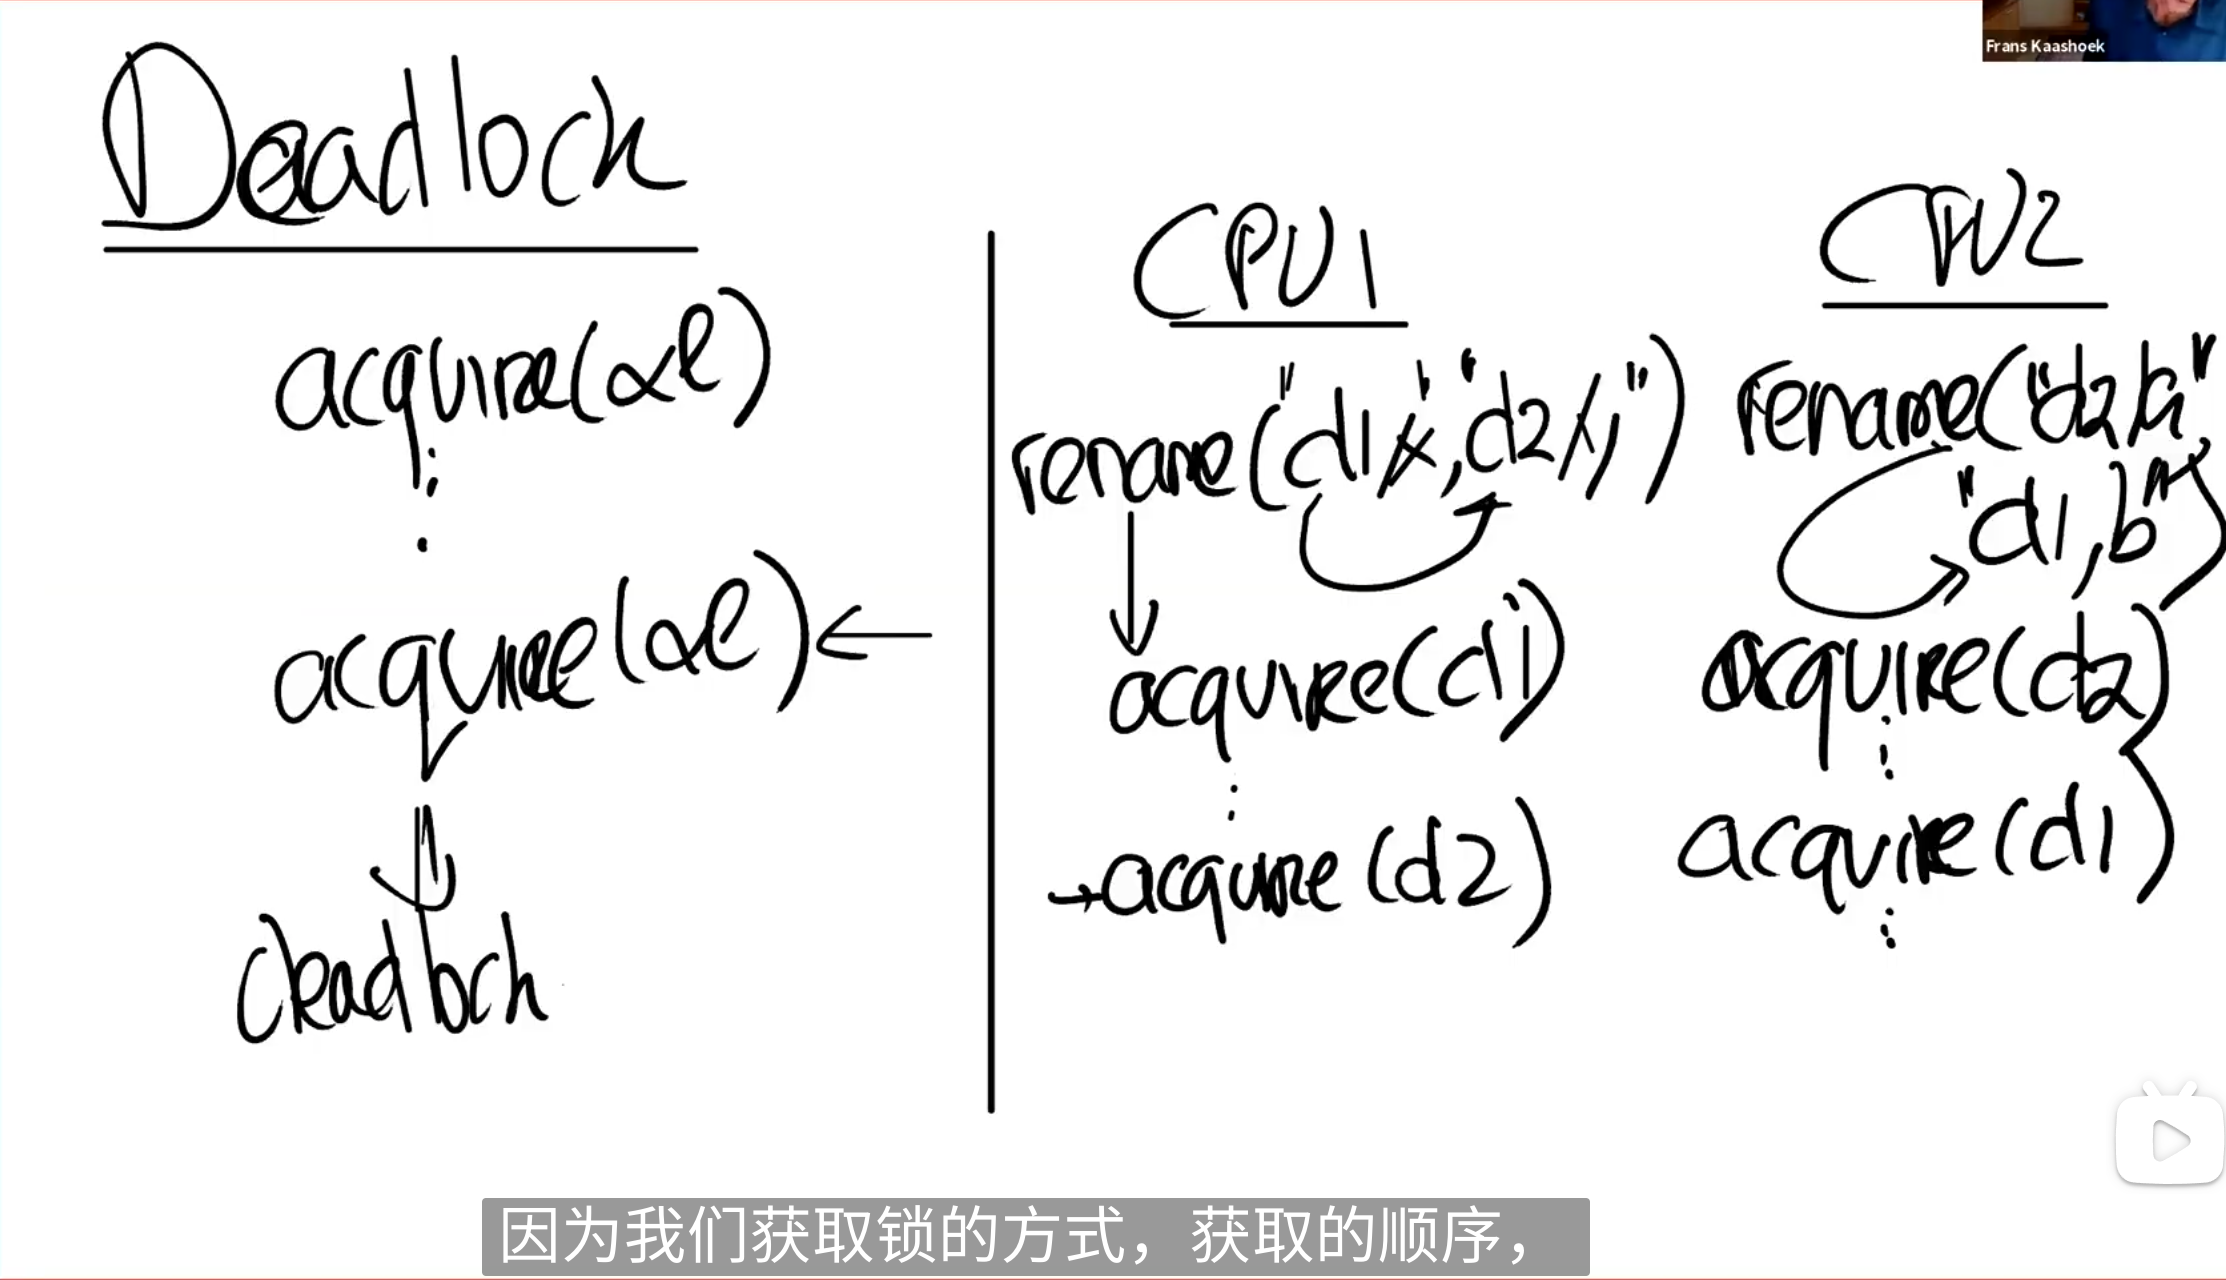 Frans Kaashoek
Deadlock
acquire(&l)
acquire(&l)
deadlock
CPU1
rename("d1/x", "d2/y")
acquire(d1)
acquire(d2)
CPU2
rename("d2/a",
"d1,b")
acquire(d2)
acquire(d1)
因为我们获取锁的方式，获取的顺序，